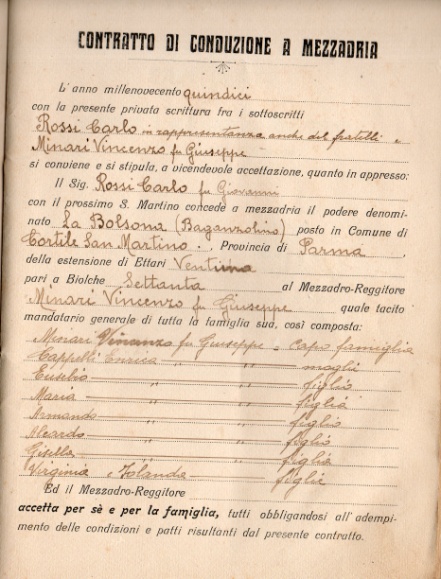 CONTRATTO DI CONDUZIONE A MEZZADRIA
L'anno millenovecento quindici
con la presente privata scrittura fra i sottoscritti
Rossi Carlo in rappresentanza anche del fratelli e
Minari Vincenzo fu Giuseppe
si conviene e si stipula, a vicendevole accettazione, quanto in appresso:
Il Sig. Rossi Carlo fu Giovanni
con il prossimo S. Martino concede a mezzadria il podere denomi-
nato La Bolsona (Baganzolino) posto in Comune di
Cortile San Martino -. , Provincia di Parma
della estensione di Ettari Ventuna
pari a Biolche Settanta al Mezzadro-Reggitore
Minari Vincenzo fu Giuseppe quale tacito
mandatario generale di tutta la famiglia sua, così composta:
Minari Vincenzo fu Giuseppe - capo famiglia
Cappelli Enrica " " moglie
Eusebio " " figlio
Maria " " figlia
Armando " " figlio
Aleardo " " figlio
Gisella " " figlia
Virginia e Jolanda " figlie
Ed il Mezzadro-Reggitore
accetta per sè e per la famiglia, tutti obbligandosi all'adempi-
mento delle condizioni e patti risultanti dal presente contratto.